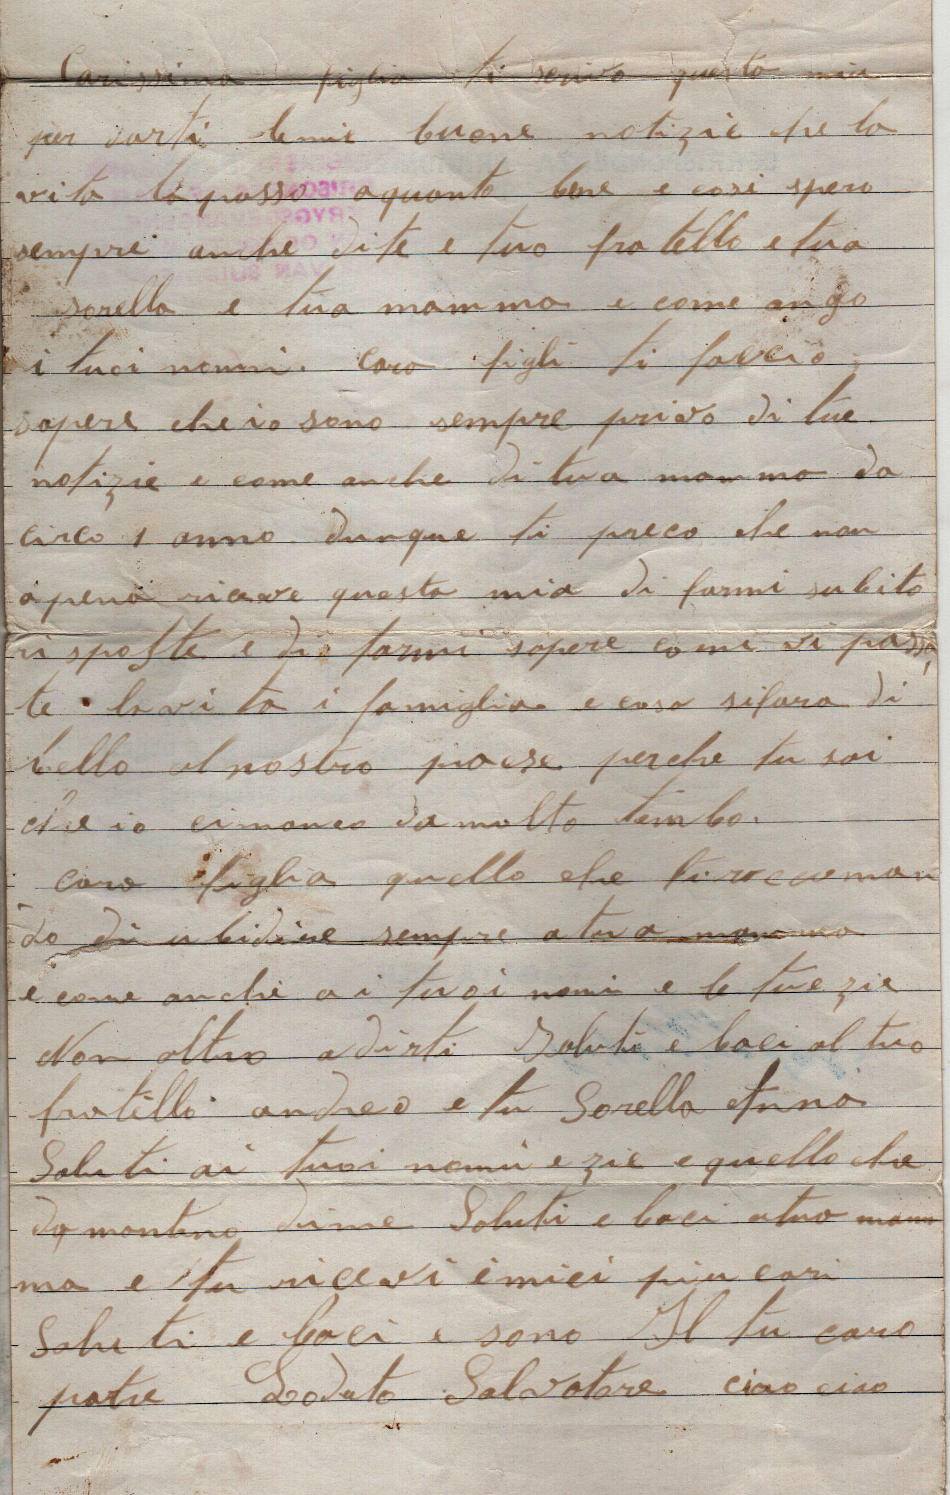 Carissima figlia ti scrivo questa mia
per darti le mie buone notizie che la
vita la passo aquanto bene e cosi spero
sempre anche dite e tuo fratello e tua
sorella e tua mamma e come ango
i tuoi nonni. Cara figli ti faccio
sapere che io sono sempre privo di tue
notizie e come anche di tua mamma da
circa 1 anno. dunque ti preco che non
apena riceve questa mia di farmi subito
risposte e di farmi sapere come vi passa
te la vita i famiglia e cosa si fara di
bello al nostro paese perche tu sai
che io ci manco da molto timbo.
cara figlia quello che ti rrecoman
do di ubidire sempre a tua mamma
e come anche ai tuoi nonni e le tue zie
Non altro a dirti Saluti e baci al tuo
fratello andrea e tu Sorella Anna
Saluti ai tuoi nonni e zie e quello che
domantino di me Saluti e baci a tuo mam
ma e tu ricevi i miei piu cari
Saluti e baci e sono Il tu caro
patre Lodato Salvatore ciao ciao
VAN